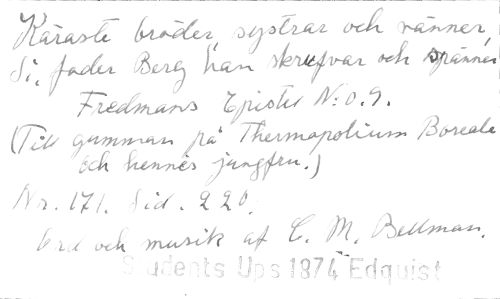 Käraste bröder, systrar och vänner,
Si, fader Berg han skrufvar och spänner
Fredmans Epistel N:o. 9.
(Till gumman på Thermopolium Boreale
och hennes jungfru.)
Nr. 171. Sid. 220.
Ord och musik af C. M. Bellman.
Students Ups 1874 Edquist